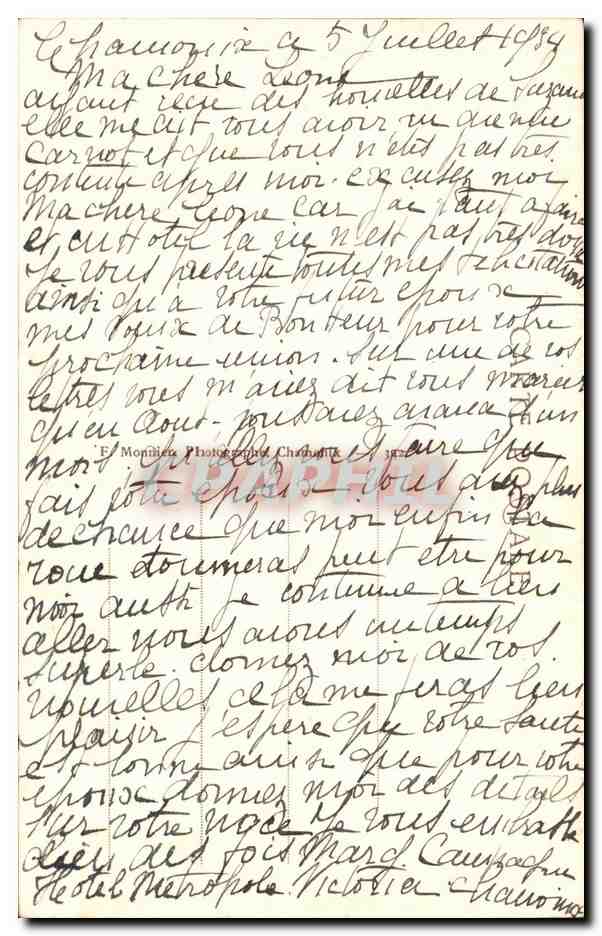 Chamonix a 5 Juillet 1934
Ma chere Leone
ayant recu des nouelles de Suzane
elle me dit vous avoir vu avenue
Carnot et que vous n'etes pas tres
contente apres moi. excusez moi
Ma chere Leone car j'ai tant a faire
et cet Hotel la vie n'est pas tres douce
Je vous presente toutes mes felicitations
ainsi qu'a votre futur epoux
mes voeux de Bonheur pour votre
prochaine union. Sur une de vos
letres vous m'aviez dit vous marier
qu'en Aout. vous avez avancé d'un
mois
F. Monilien Photographe, Chamonix
que
fais votre epoux vous avez plus
de chance que moi enfin la
roue tourneras peut etre pour
moi aussi je continue a bien
aller nous avons un temps
superbe. donnez moi de vos
nouvelles cela me feras bien
plaisir j'espere que votre Santé
est bonne ainsi que pour votre
epoux donnez moi des details
sur votre noce Je vous embrasse
bien des fois Marg
Hotel Metropole Victoria Chamonix
CARTE POSTALE
CPAPHIL